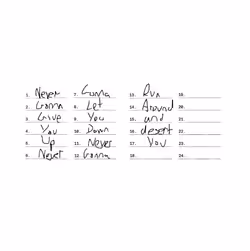 1. Never
2. Gonna
3. Give
4. You
5. Up
6. Never
7. Gonna
8. Let
9. You
10. Down
11. Never
12. Gonna
13. Run
14. Around
15. and
16. desert
17. You
18.
19.
20.
21.
22.
23.
24.